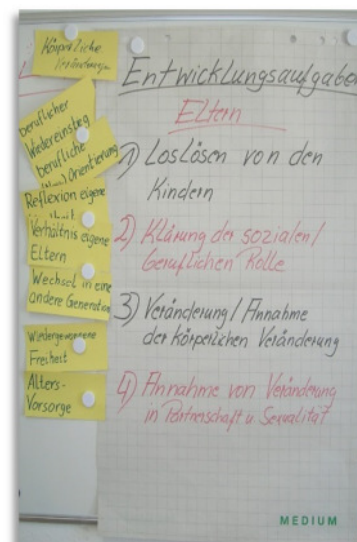 Körperliche
Veränderungen
beruflicher
Wiedereinstieg
berufliche
(Neu) Orientierung
Reflexion eigene
Verhältnis eigene
Eltern
Wechsel in eine
andere Generation
Wiedergewonnene
Freiheit
Alters-
Vorsorge
Entwicklungsaufgaben
Eltern
1) Loslösen von den
Kindern
2) Klärung der sozialen/
beruflichen Rolle
3) Veränderung/Annahme
der körperlichen Veränderung
4) Annahme von Veränderung
in Partnerschaft u. Sexualität
MEDIUM